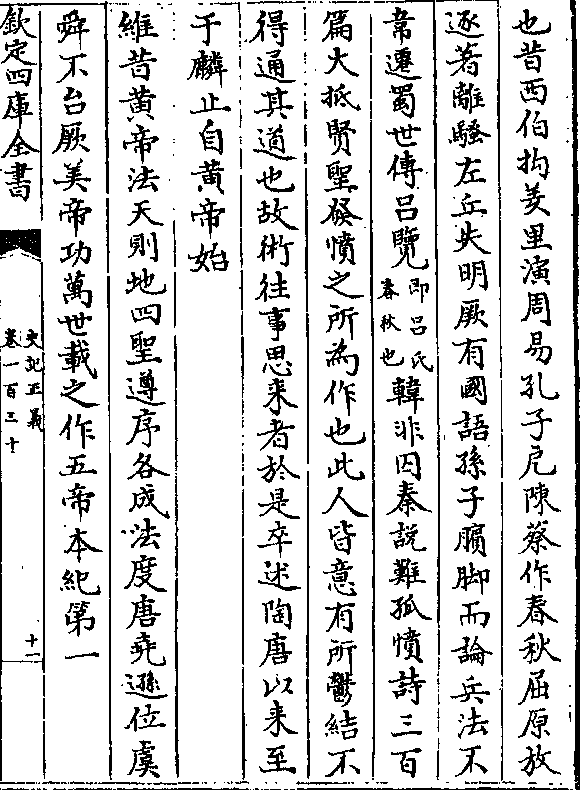 也昔西伯拘羑里演周易孔子戹陳蔡作春秋屈原放
逐著離騷左丘失明厥有國語孫子臏脚而論兵法不
韋遷蜀世傳吕覽即吕氏春秋也韓非囚秦說難孤憤詩三百
篇大抵賢聖發憤之所為作也此人皆意有所鬱結不
得通其道也故術往事思来者於是卒述陶唐以来至
于麟止自黄帝始
維昔黄帝法天則地四聖遵序各成法度唐堯遜位虞
舜不台厥美帝功萬世載之作五帝本紀第一
欽定四庫全書
史記正義
卷一百三十
十一